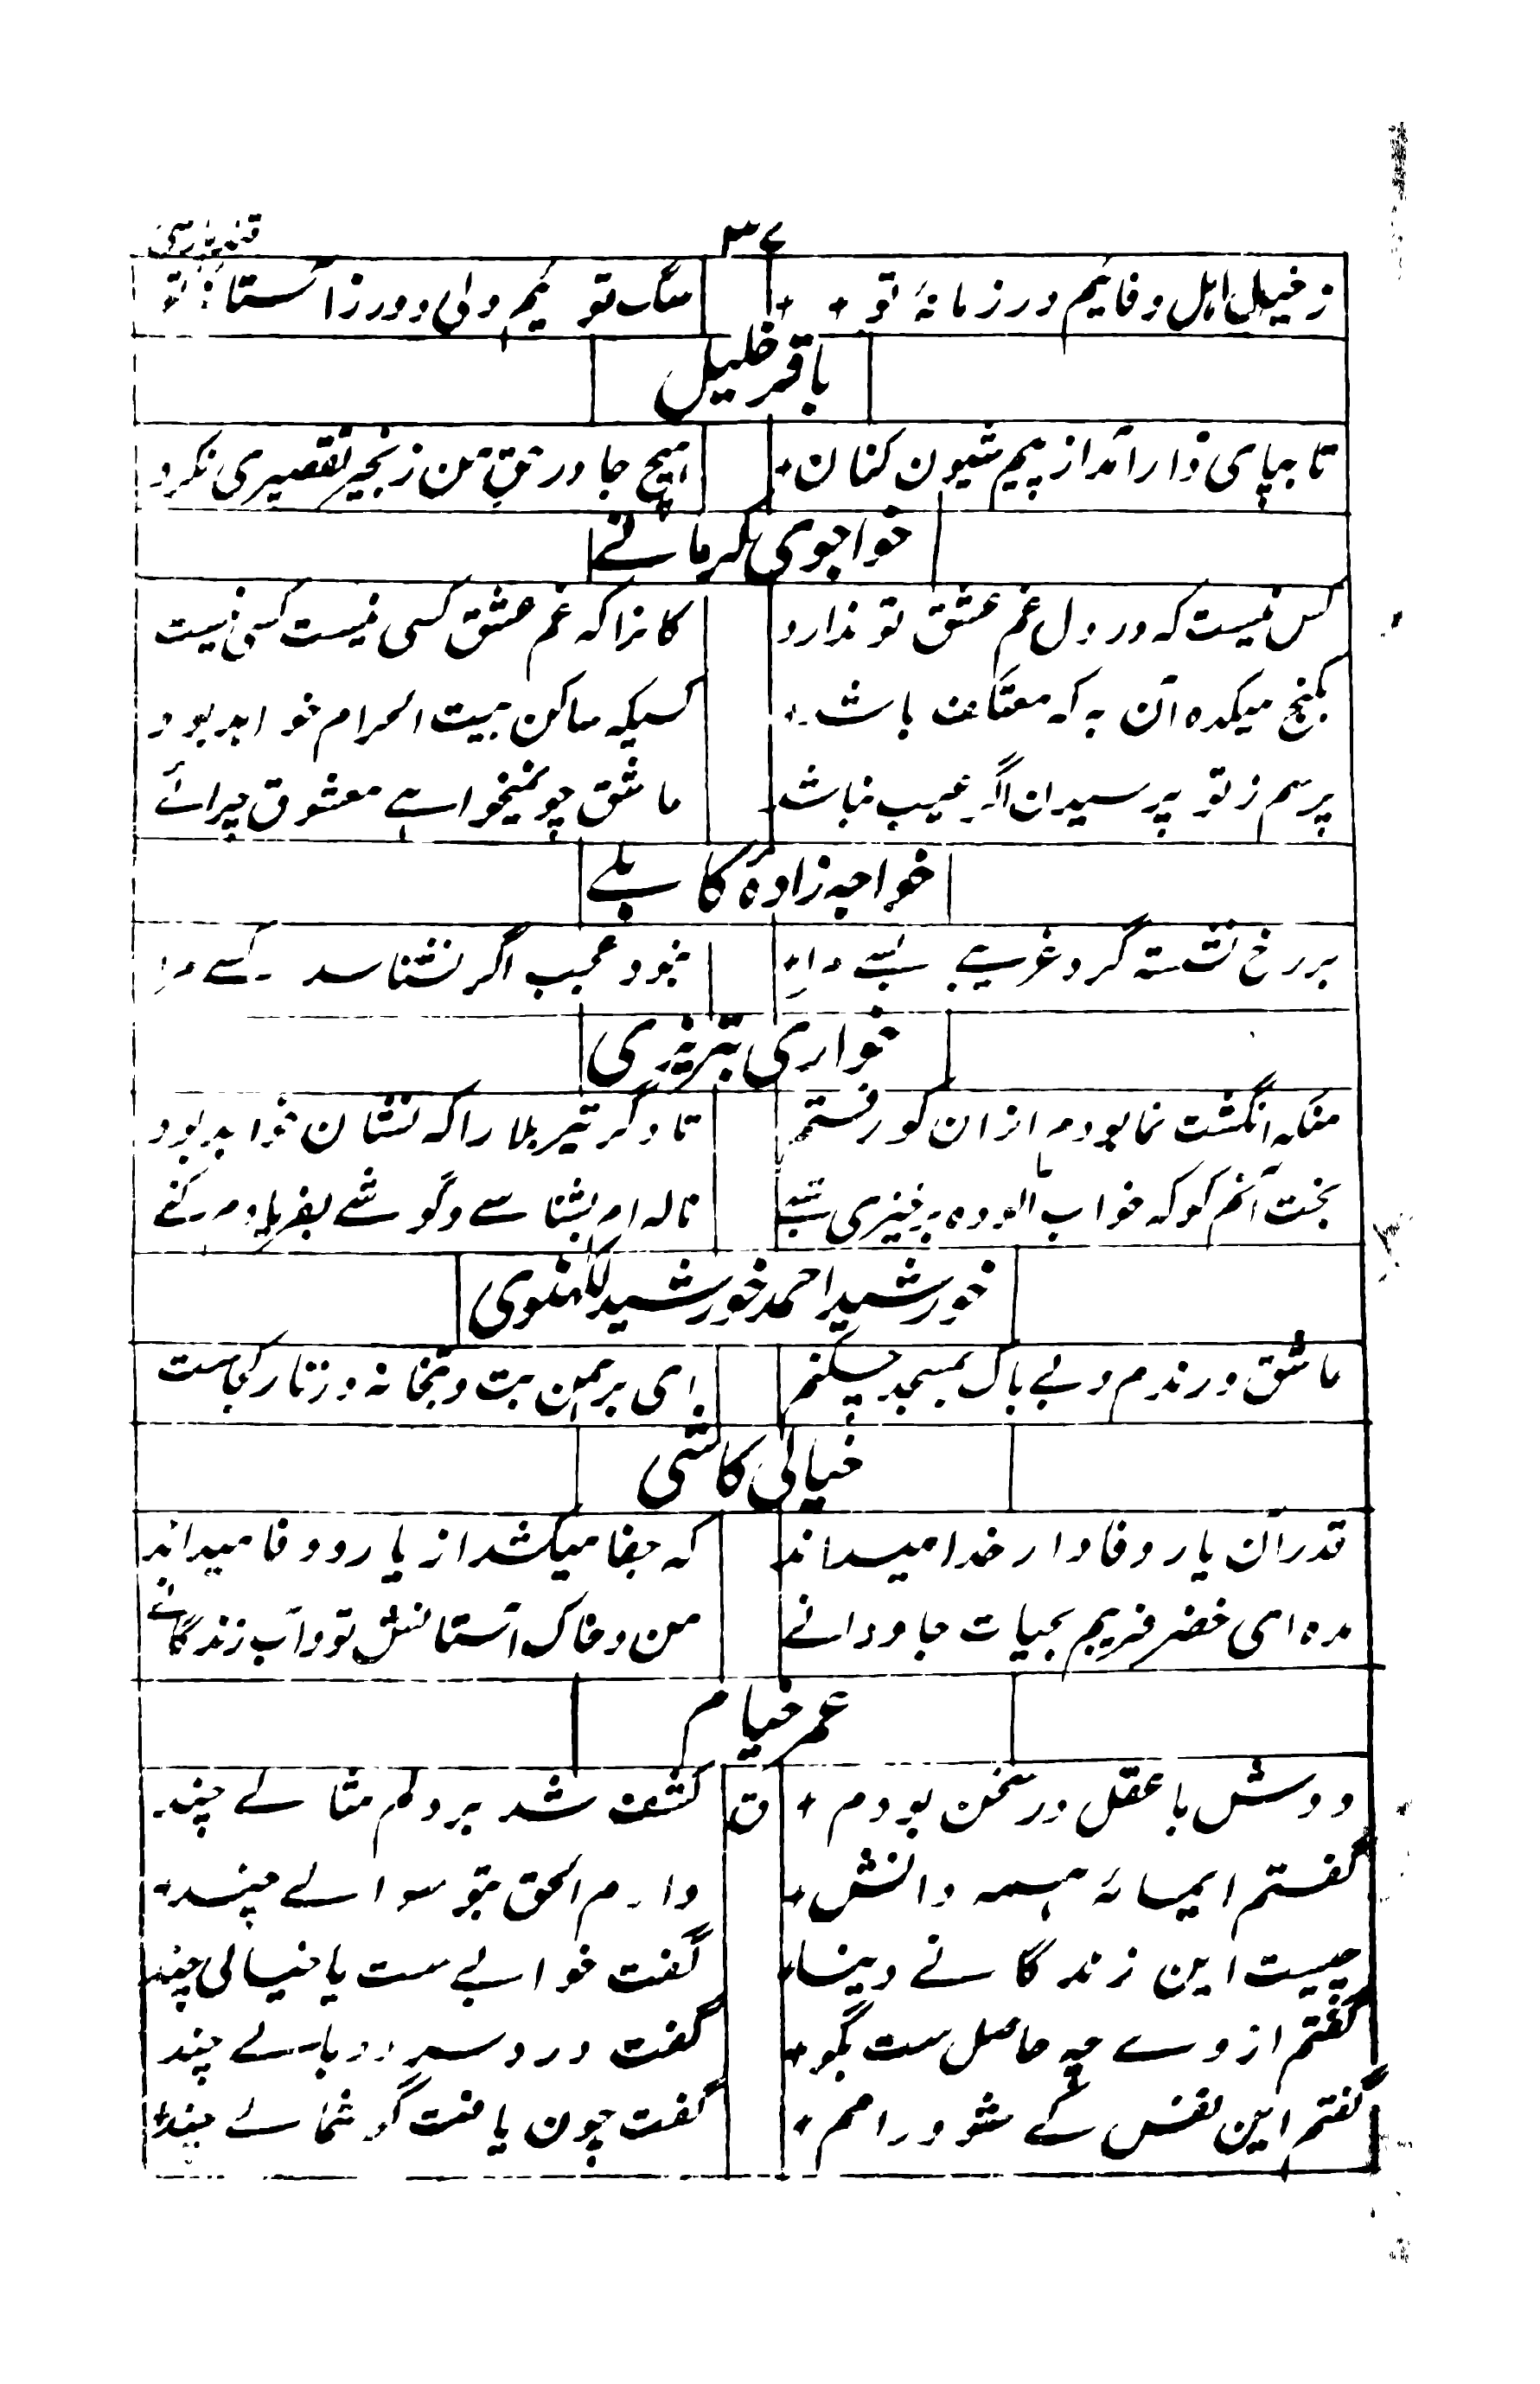 ۳۷
قند پارسی
ز خیل اهل وفایم در زمانهٔ تو سگ تو ایم ولی دور ز آستانهٔ تو
باقر خلیل
تا بپای دار آمد از پیم شیون کنان هیچ جا در حق من زنجیر تقصیری نکرد
خواجوی کرمانے
کس نیست که در دل غم عشق تو ندارد کانرا که غم عشق کسی نیست کسی نیست
بکنج میکده آن به که معتکف باشد کسیکه ساکن بیت الحرام خواهد بود
پرسم ز تو پرسیدن اگر عیب نباشد عاشق چو نمیخواہے معشوق چرائے
خواجه زاده کابلے
بر رخ نشسته گرد غریبے بسے مرا نبود عجب اگر نشناسد کسے مرا
خواری تبریزی
منکه انگشت نما بودم ازان کو رفتم تا دگر تیر بلا را که نشان خواهد بود
بخت آنم کو که خواب آلوده برخیزی شبے ناله ام بشناسے و گوشے بفریادم کنے
خورشید احمد خورشید لکھنوی
عاشق و رندم و بے باک بمسجد چکنم ای برهمن بت و بتخانه و زنار کجاست
خیالی کاشی
قدر آن یار وفادار خدا میداند که جفا میکشد از یار و وفا میداند
مده ای خضر فریبم بحیات جاودانے من و خاک آستانش تو و آب زندگانے
عمر خیام
دوش با عقل در سخن بودم ق کشف شد بر دلم مثالے چند
گفتم ایمایهٔ همه دانش دارم الحق بتو سوالے چند
چیست این زندگانے دنیا گفت خوابے ست یا خیالی چند
گفتم از وے چه حاصل ست بگو گفت درد سر و وبالے چند
گفتم این نفس کے شود رامم گفت چون یافت گوشمالے چند